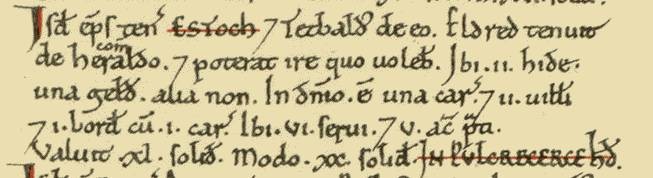 Isd̃ ep̃s ten' ESTOCH 7 Tetbald' de eo. Eldred tenuit
de com heraldo. 7 poterat ire quo uoleb̃. Ibi .ii. hidę.
una geld̃. alia non. In dñio. ẽ una car'. 7 ii. uilłi
7 i. bord̃ cũ .i. car'. Ibi .vi. serui. 7 v. ac̃ p̃ti.
Valuit .xl. solid̃. Modo .xx. solid̃. IN PVLCRECERCE h̃d.